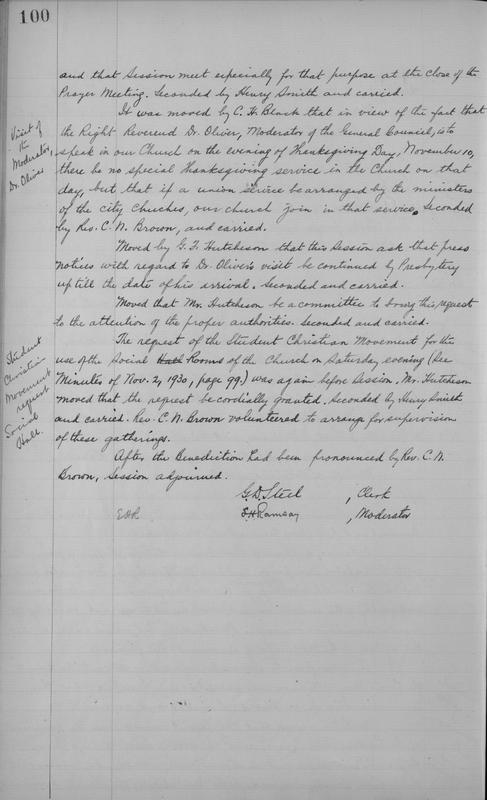 100
and that Session meet especially for that purpose at the close of the
Prayer Meeting. Seconded by Henry Smith and carried.
It was moved by C. H. Black that in view of the fact that
the Right Reverend Dr. Oliver, Moderator of the General Council, is to
speak in our Church on the evening of Thanksgiving Day, November 10,
there be no special Thanksgiving service in the Church on that
day, but that if a union service be arranged by the ministers
of the city Churches, our church join in that service. Seconded
by Rev. C. N. Brown, and carried.
Visit of
the
Moderator,
Dr. Oliver
Moved by G. F. Hutcheson that this Session ask that press
notices with regard to Dr. Oliver's visit be continued by Presbytery
up till the date of his arrival. Seconded and carried.
Moved that Mr. Hutcheson be a committee to bring this request
to the attention of the proper authorities. Seconded and carried.
The request of the Student Christian Movement for the
use of the Social Hall Rooms of the Church on Saturday evening (See
Minutes of Nov. 2, 1930, page 99.) was again before Session. Mr. Hutcheson
moved that the request be cordially granted. Seconded by Henry Smith
and carried. Rev. C. N. Brown volunteered to arrange for supervision
of these gatherings.
Student
Christian
Movement
request
Social
Hall.
After the Benediction had been pronounced by Rev. C. N.
Brown, Session adjourned.
G. D. Steel , Clerk
E.H.R. E. H. Ramsay , Moderator